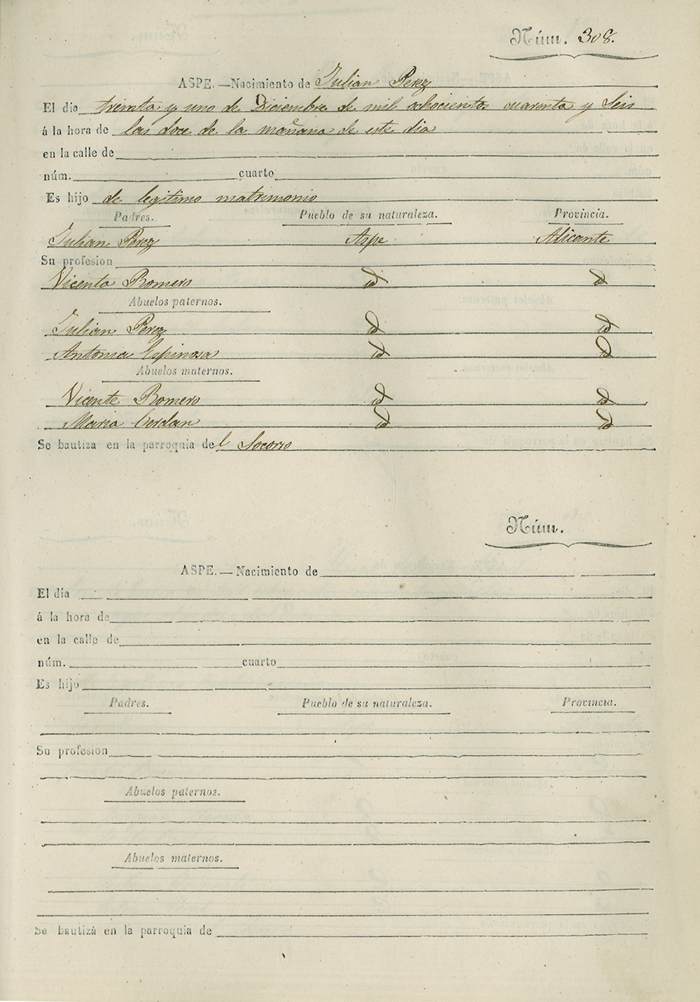 Núm. 308.
ASPE.—Nacimiento de Julian Perez
El dia treinta y uno de Diciembre de mil ochocientos cuarenta y seis
á la hora de las doce de la mañana de este dia
en la calle de
núm. cuarto
Es hijo de legitimo matrimonio
Padres. Pueblo de su naturaleza. Provincia.
Julian Perez Aspe Alicante
Su profesion
Vicenta Romero id id
Abuelos paternos.
Julian Perez id id
Antonia Espinosa id id
Abuelos maternos.
Vicente Romero id id
Maria Cerdan id id
Se bautiza en la parroquia del Socorro
Núm.
ASPE.—Nacimiento de
El dia
á la hora de
en la calle de
núm. cuarto
Es hijo
Padres. Pueblo de su naturaleza. Provincia.
Su profesion
Abuelos paternos.
Abuelos maternos.
Se bautizá en la parroquia de